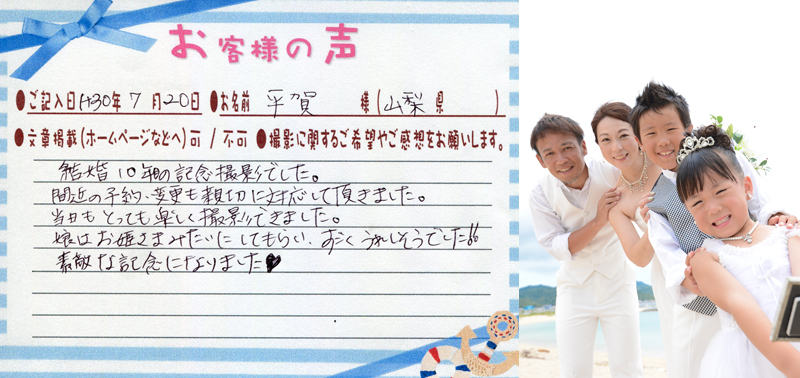 お客様の声
●ご記入日H30年7月20日 ●お名前 平賀 様(山梨県 )
●文章掲載(ホームページなどへ)可 / 不可 ●撮影に関するご希望やご感想をお願いします。
結婚10年の記念撮影でした。
間近の予約、変更も親切に対応して頂きました。
当日もとっても楽しく撮影できました。
娘はお姫さまみたいにしてもらい、すごくうれしそうでした!!
素敵な記念になりました♥